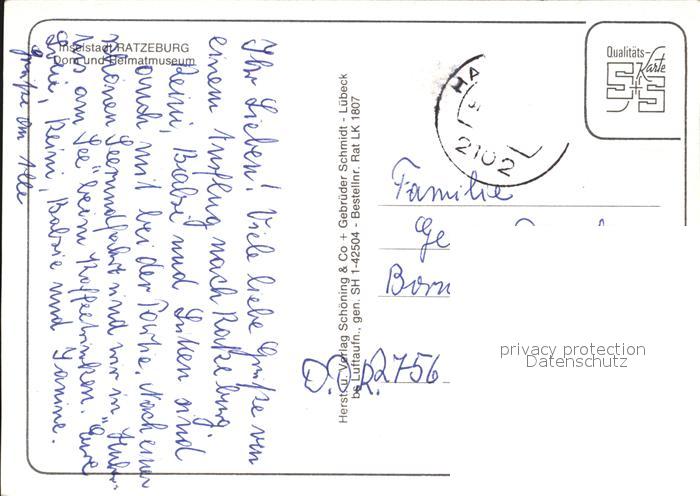 Inselstadt RATZEBURG
Dom und Heimatmuseum
Ihr Lieben! Viele liebe Grüße von
einem Ausflug nach Ratzeburg.
Reimi, Babsi und sind
auch mit bei der Partie. Nach einer
schönen Seerundfahrt sind wir in
am See" beim Kaffeetrinken. Eure
Reimi, Babsie und Janine.
Grüße an Alle
Herst. u. Verlag Schöning & Co + Gebrüder Schmidt - Lübeck
bs Luftaufn., gen. SH 1-42504 - Bestellnr. Rat LK 1807
Qualitäts-
Karte
S+S
HA
2102
Familie
Ge
Born
D.D.R. 2756
privacy protection
Datenschutz